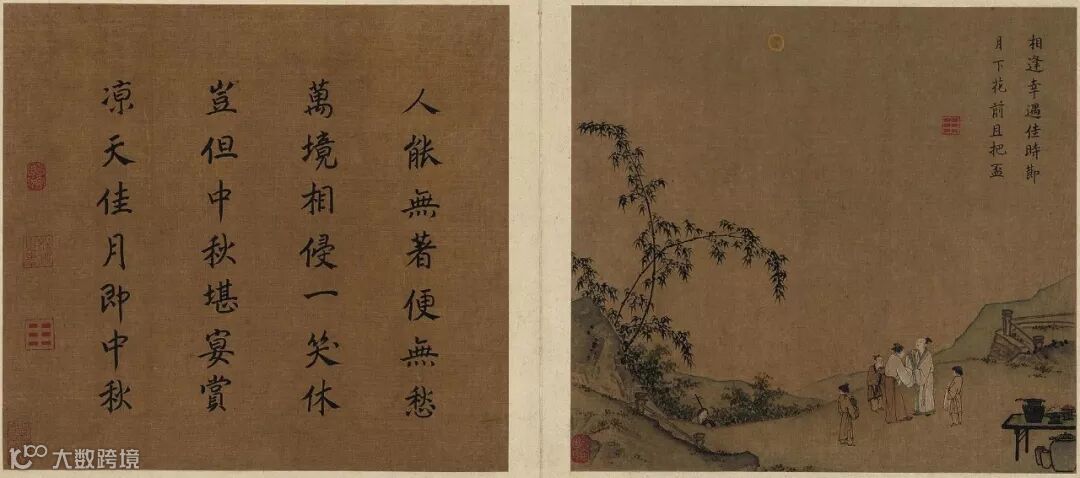 相逢幸遇佳時節
月下花前且把盃
人能無著便無愁
萬境相侵一笑休
豈但中秋堪宴賞
凉天佳月即中秋
大数跨境